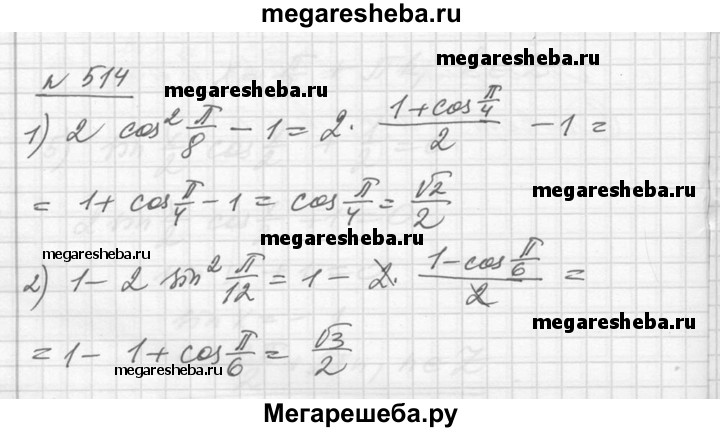 megaresheba.ru
№ 514
megaresheba.ru
1) 2 cos² π/8 − 1 = 2 · (1+cos π/4)/2 − 1 =
= 1 + cos π/4 − 1 = cos π/4 = √2/2
megaresheba.ru
megaresheba.ru
megaresheba.ru
2) 1 − 2 sin² π/12 = 1 − 2 · (1−cos π/6)/2 =
megaresheba.ru
= 1 − 1 + cos π/6 = √3/2
megaresheba.ru
Мегарешеба.ру